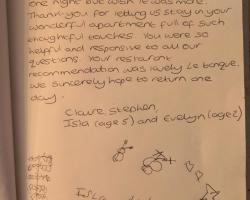 one night but wish it was more.
Thank you for letting us stay in your
wonderful apartment full of such
thoughtful touches. You were so
helpful and responsive to all our
questions. Your restaurant
recommendation was lovely Le tongue.
We sincerely hope to return one
day.
Claire, Stephen,
Isla (age 5) and Evelyn (age 2)
ISLA